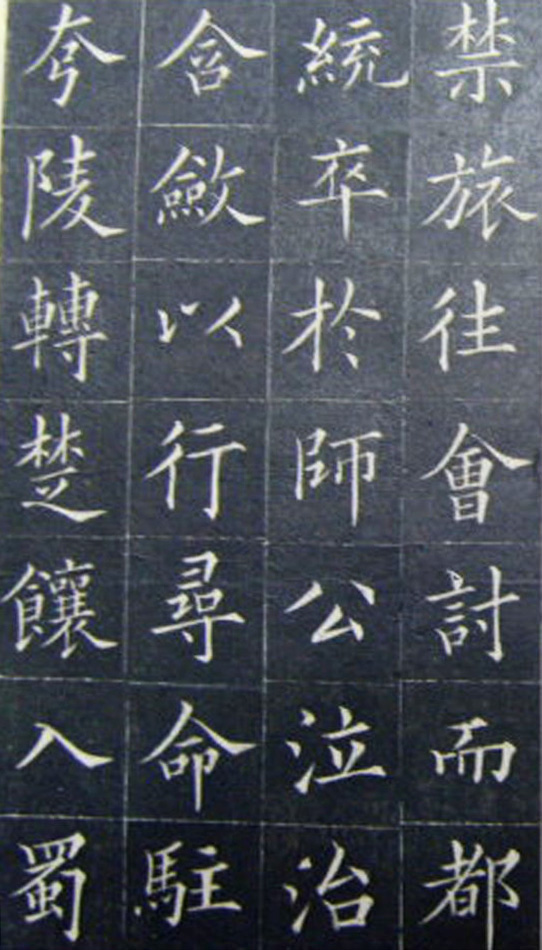 禁旅往會討而都
統卒於師公泣治
含斂以行尋命駐
夸陵轉楚饟入蜀